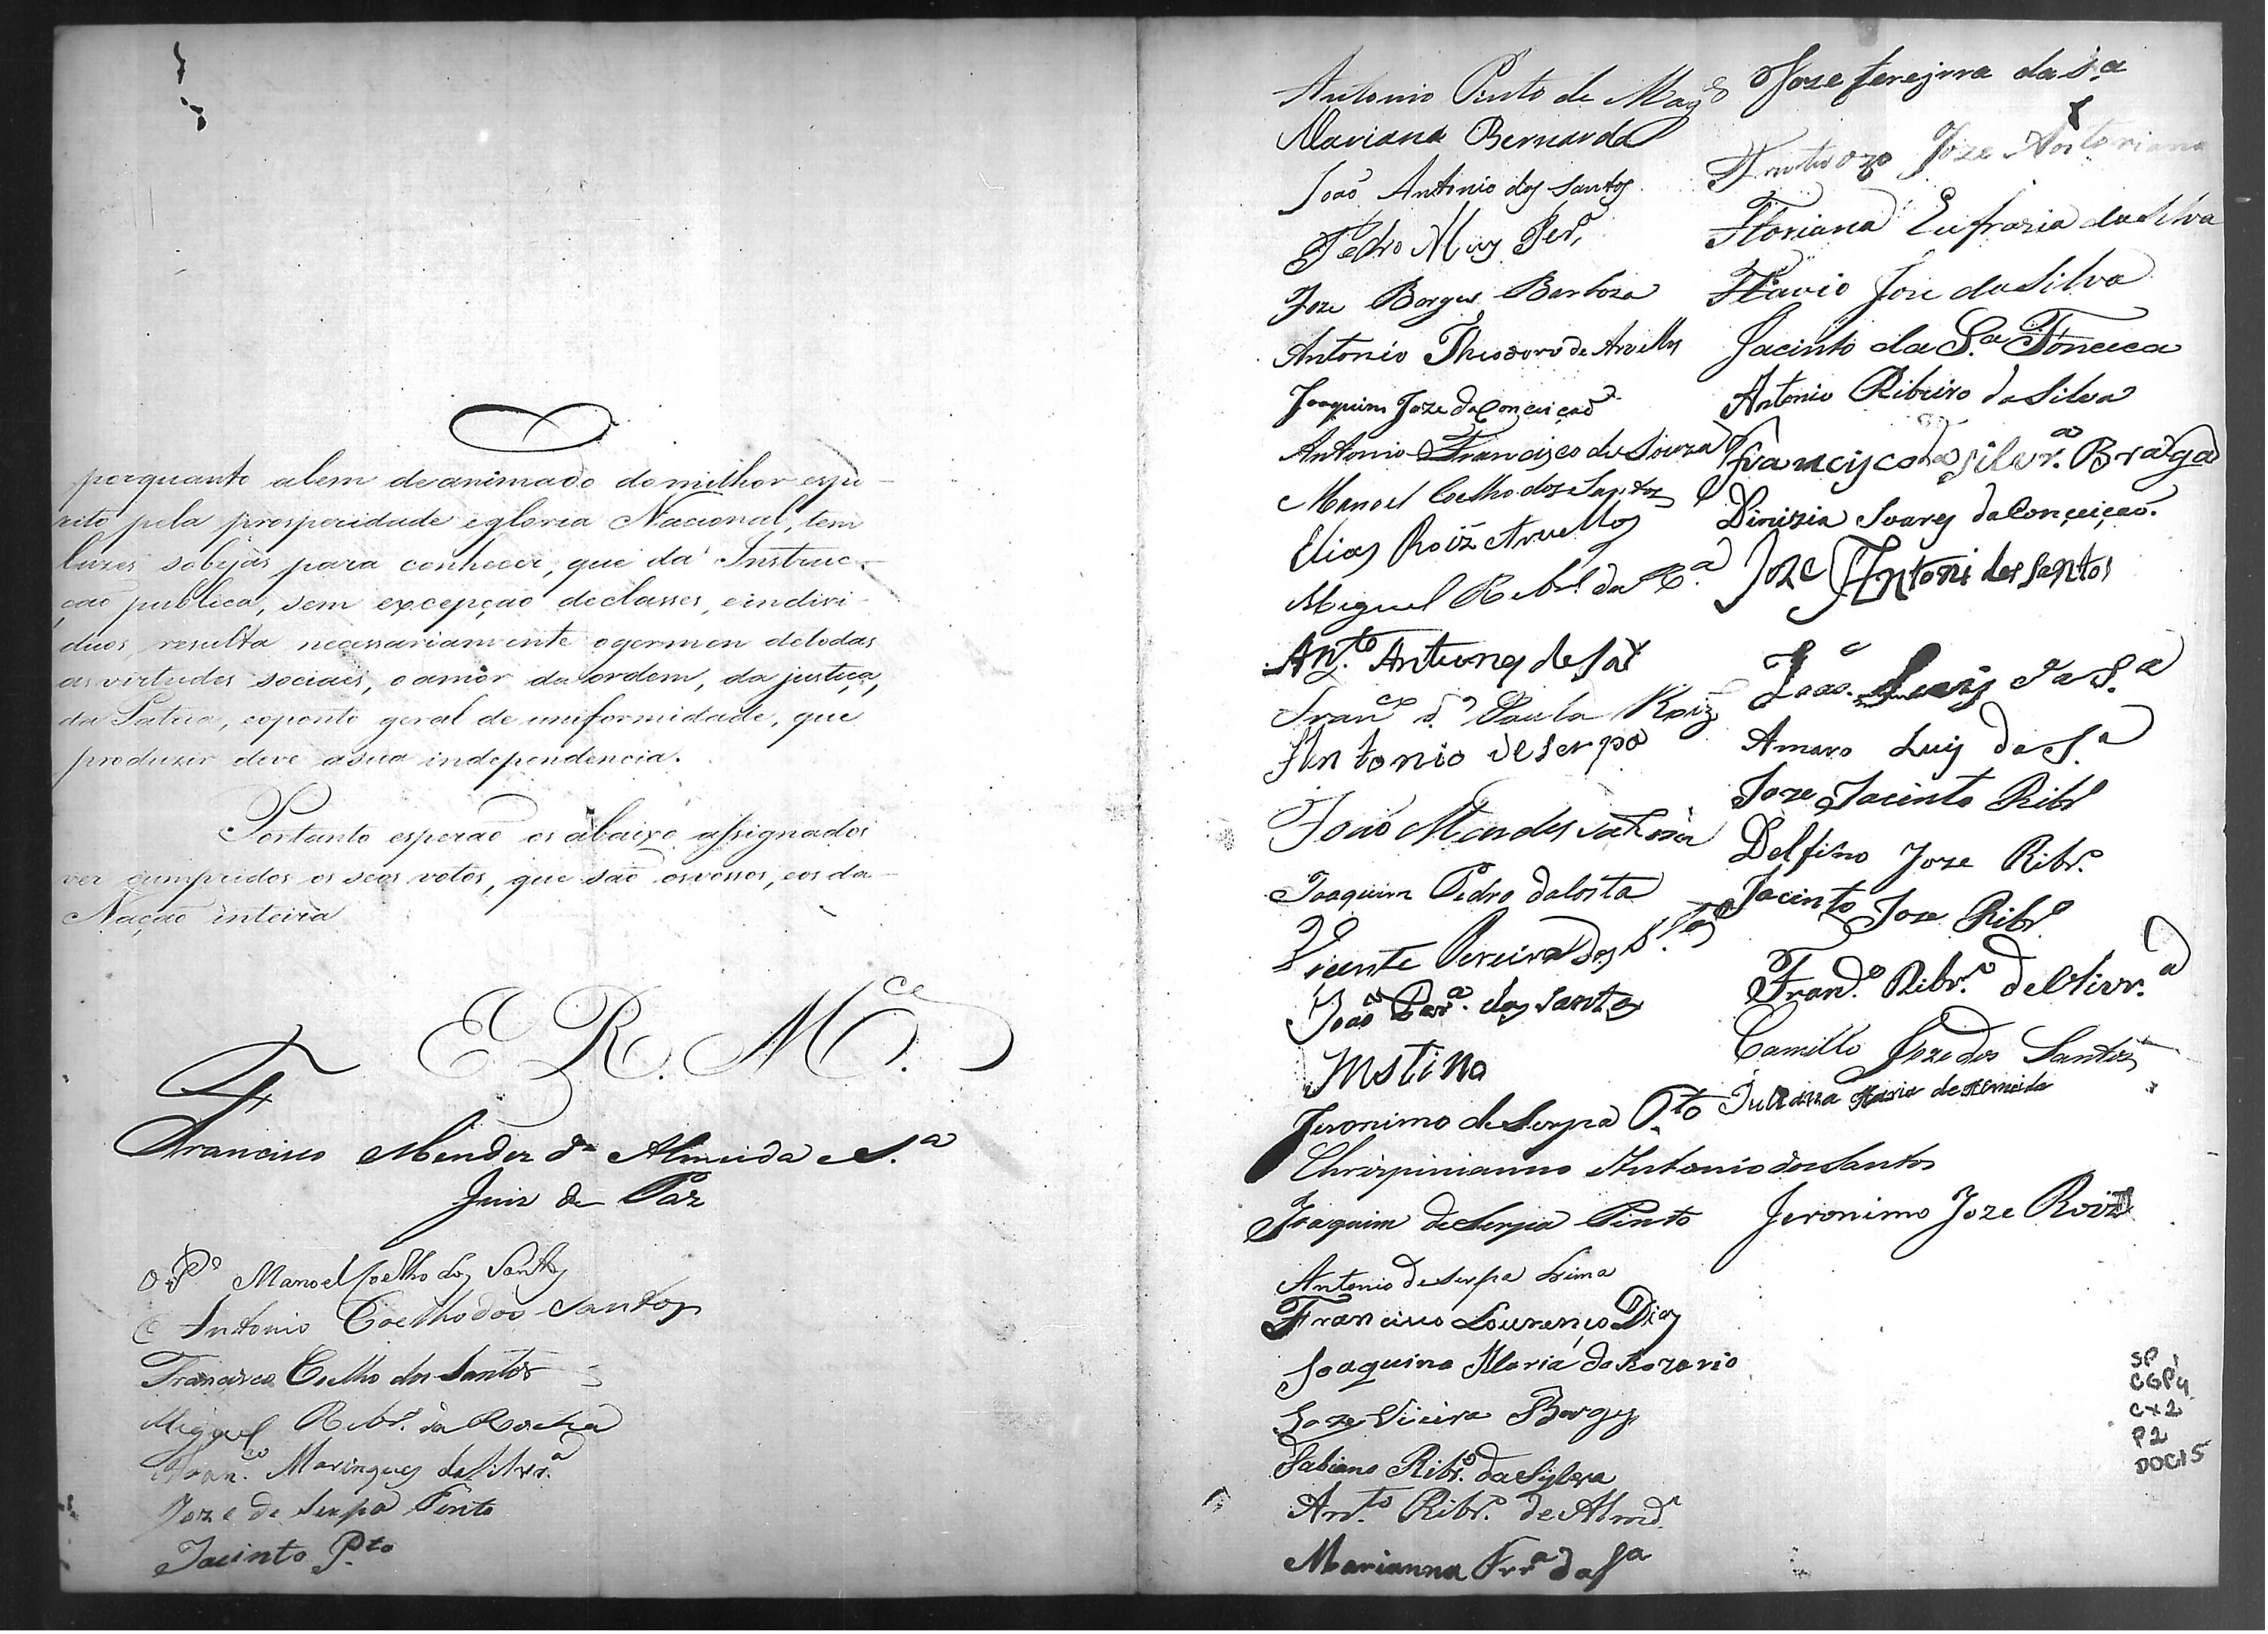 porquanto alem de animado do milhor espi-
rito pela prosperidade e gloria Nacional, tem
luzes sobejas para conhecer, que da Instruc-
çaõ publica, sem excepçaõ de classes, e indivi-
duos, resulta necessariamente o germen de todas
as virtudes sociaes, o amor da ordem, da justiça,
da Patria, e o ponto geral de uniformidade, que
produzir deve a sua independencia.
Portanto esperaõ os abaixo assignados
ver cumpridos os seos votos, que saõ os vossos, e os da
Naçaõ inteira
E R. M.ce
Francisco Mendes de Almeida e S.a
Juiz de Paz
O P.e Manoel Coelho dos Santos
Antonio Coelho dos Santos
Francisco Coelho dos Santos
Miguel Ribr.o da Rocha
Fran.co Maringues da Silvr.a
Joze de Serpa Pinto
Jacinto P.to
Antonio Pinto de Mag.es
Mariana Bernarda
Joaõ Antonio dos Santos
Pedro Per.a
Joze Borges Barboza
Antonio Theodoro de Arvellos
Joaquim Joze da Conceiçaõ
Antonio Francisco de Souza
Manoel Coelho dos Santos
Elias Roiz Arvellos
Miguel Ribr.o da R.a
An.to Antunes de Sá
Fran.co d. Paula Roiz
Antonio de Serpa
Joaõ Mendes
Joaquim Pedro da Costa
Vicente Pereira dos S.tos
Joaõ Per.a dos Santos
Justina
Jeronimo de Serpa P.to
Chrispinianno Antonio dos Santos
Joaquim de Serpa Pinto
Antonio de Serpa Lima
Francisco Lourenço Dias
Joaquina Maria do Rozario
Joze Vieira Borges
Fabiano Ribr.o da Sylvra
An.to Ribr.o de Almd.a
Marianna Frr.a da S.a
Joze ferejrra da S.a
Frutuozo Joze
Floriana Eufrazia da Silva
Flavio Joze da Silva
Jacinto da S.a Fonceca
Antonio Ribeiro da Silva
Francisco da Silvr.a Braga
Dinizia Soares da Conçeiçaõ.
Joze Antoni dos Santos
Joaõ Luis da S.a
Amaro Luis da S.a
Joze Jacinto Ribr.o
Delfino Joze Ribr.o
Jacinto Joze Ribr.o
Fran.co Ribr.o de Olivr.a
Camillo Joze dos Santos
Juliana Maria de Almeida
Jeronimo Joze Roiz
SP 1
CGP4
CX2
P2
DOC15